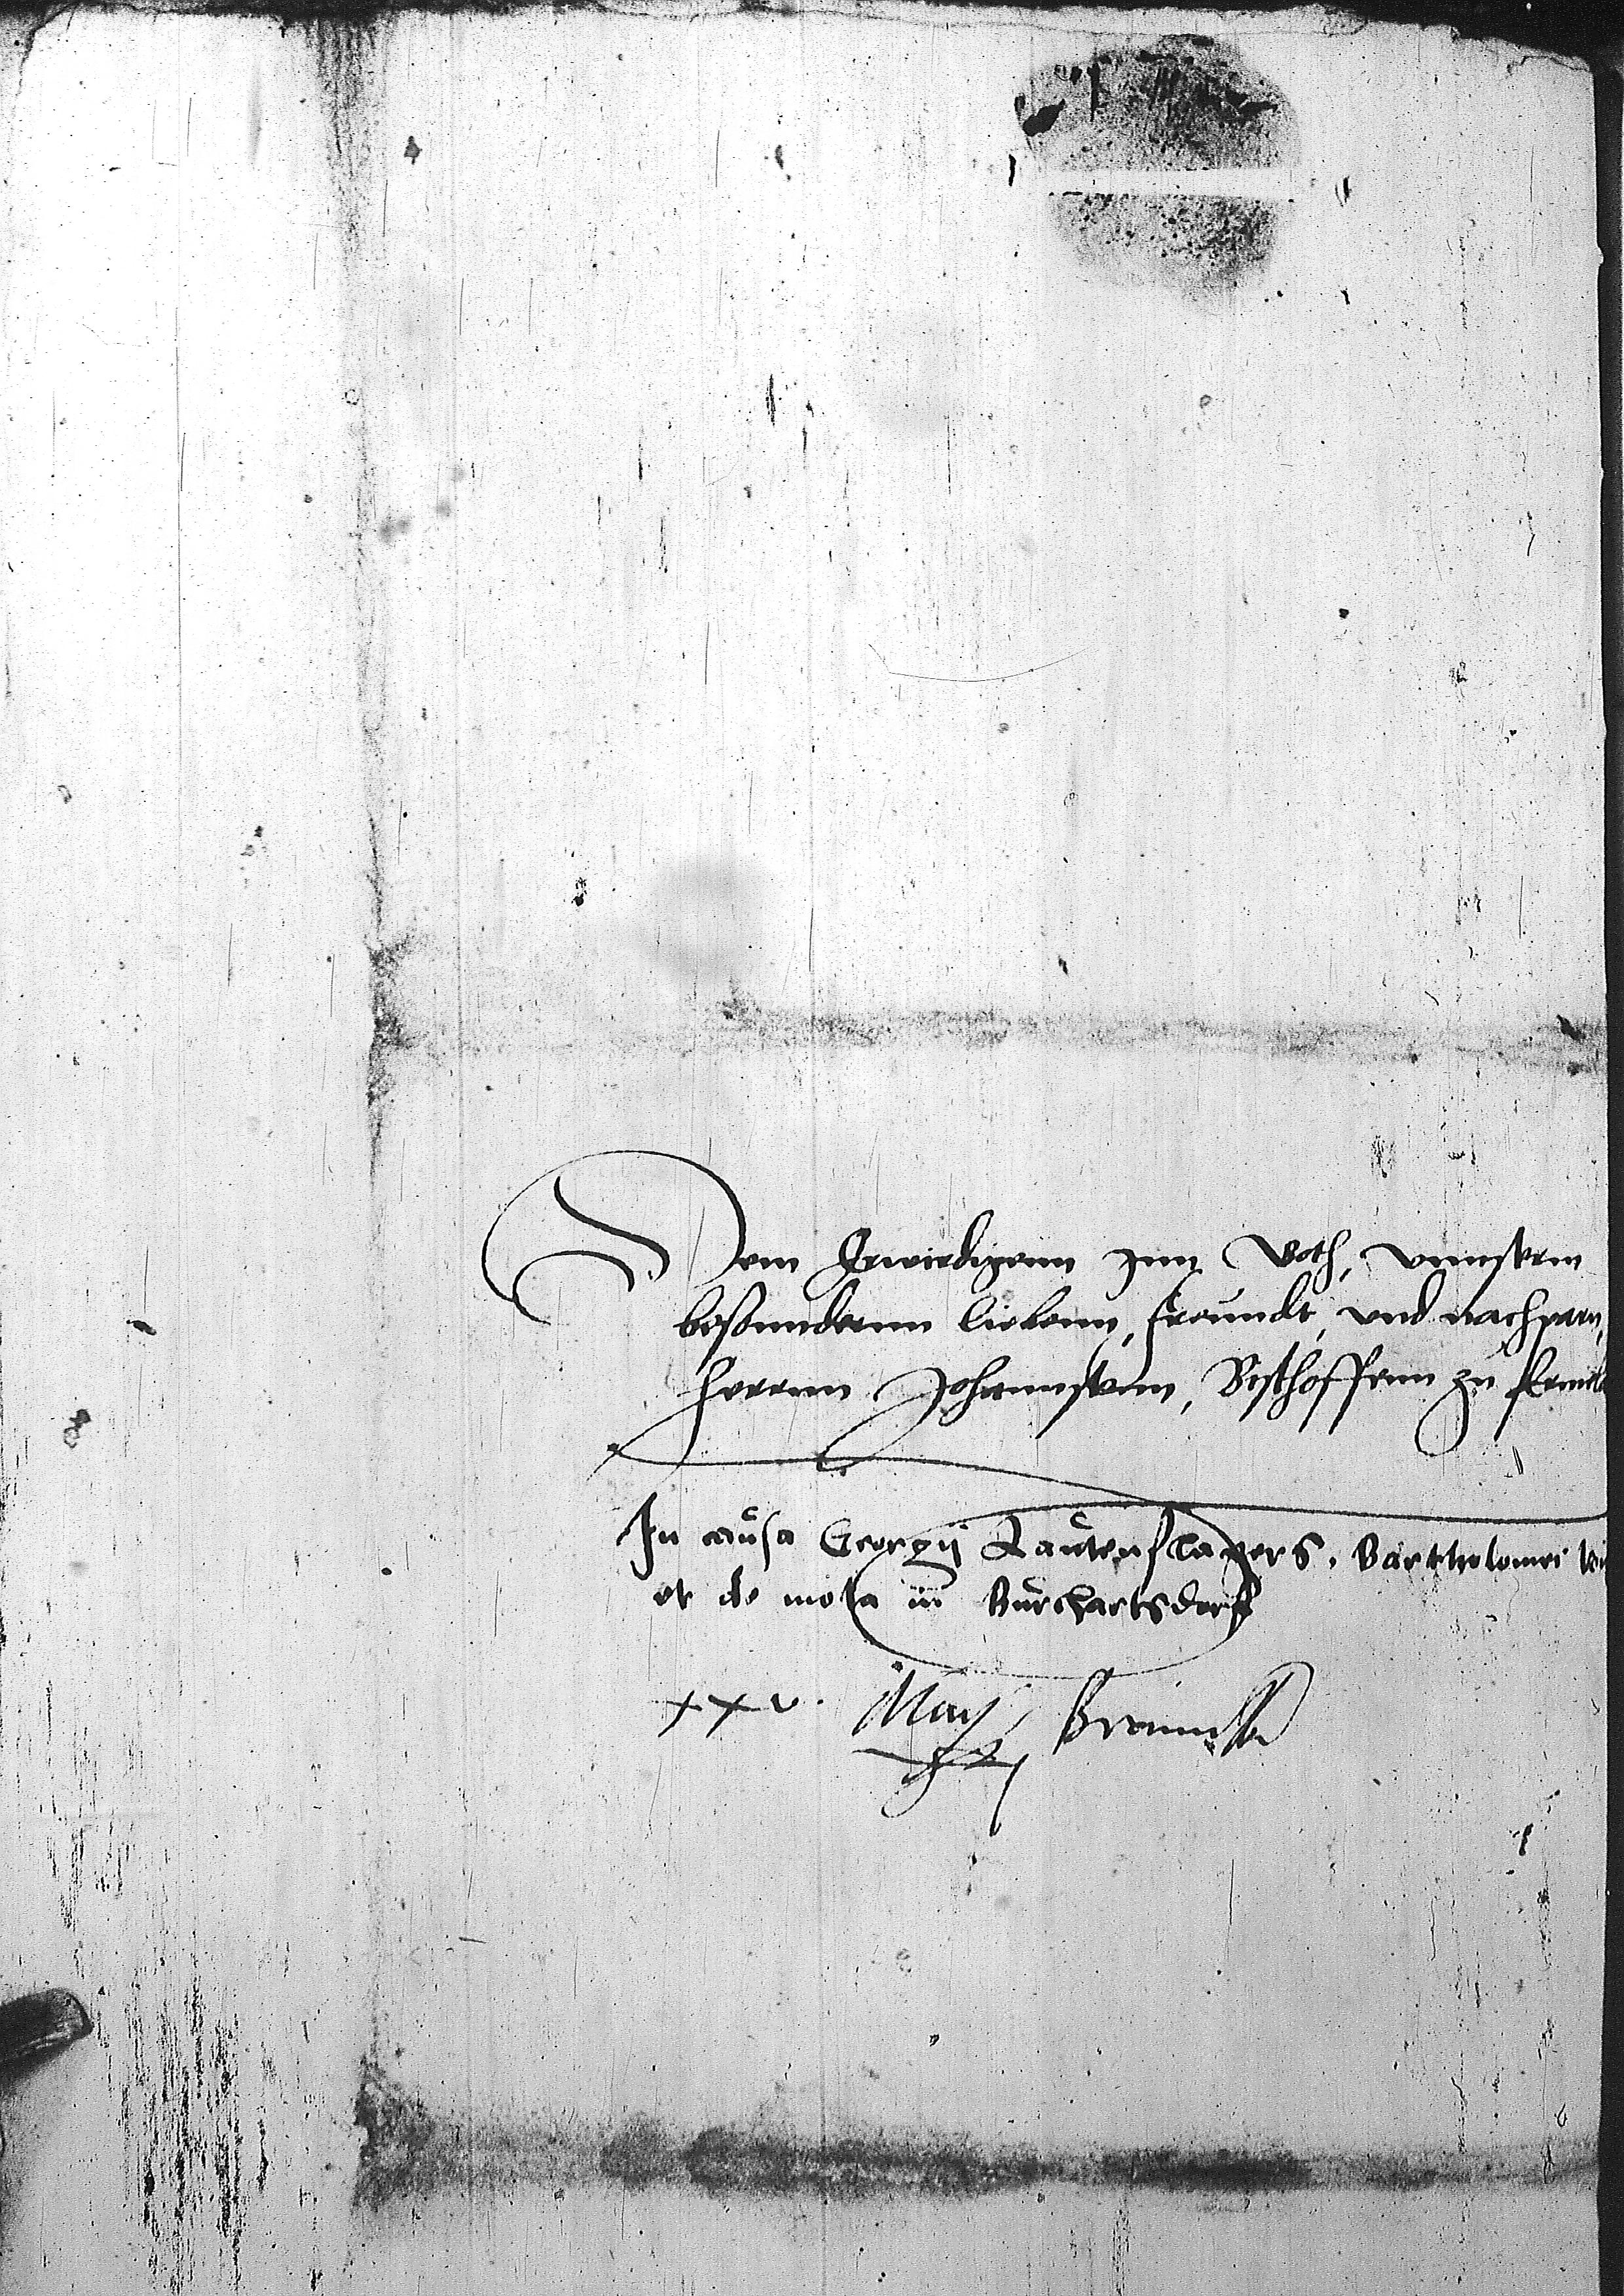 Dem Erwirdigenn Inn Goth, vnnserm
besonndernn liebenn, freundt, vnd nachparn,
Herrnn Johannsenn, Bischoffenn zu Ermla
In causa Georgii Lautenslagers. Bartholomei
et de mola in Burchartsdorff
xxv. May